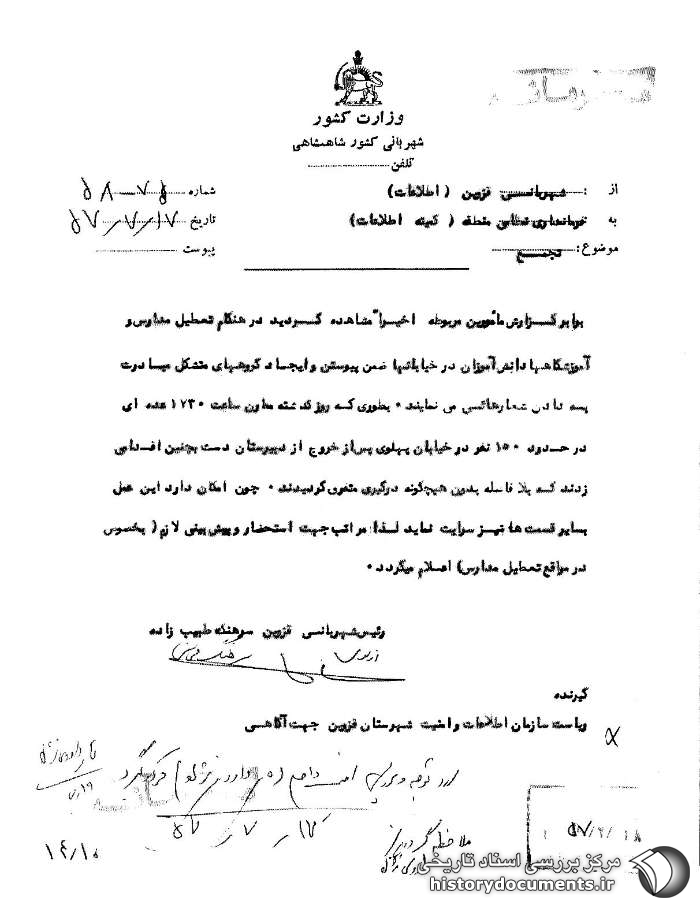 محرمانه
وزارت کشور
شهربانی کشور شاهنشاهی
تلفن
از : شهربانی قزوین ( اطلاعات)
شماره
به فرمانداری نظامی منطقه ( کمیته اطلاعات)
تاریخ ۵۷/۷/۱۷
موضوع: تجمع
پیوست
برابر گزارش مأمورین مربوطه اخیراً مشاهده گردید در هنگام تعطیل مدارس و
آموزشگاهها دانش آموزان در خیابانها ضمن پیوستن و ایجاد گروههای متشکل مبادرت
بسه دادن شعارهائی می نمایند ۰ بطوری که روز گذشته مقارن ساعت ۱۷۳۰ عده ای
در حدود ۱۵۰ نفر در خیابان پهلوی پس از خروج از دبیرستان دست بچنین اقدامی
زدند که بلا فاصله بدون هیچگونه درگیری متفرق گردیدند ۰ چون امکان دارد این عمل
بسایر قسمت ها نیز سرایت نماید لذا مراتب جهت استحضار و پیش بینی لازم ( بخصوص
در مواقع تعطیل مدارس) اعلام میگردد ۰
رئیس شهربانی قزوین سرهنگ طبیب زاده
از سوی
گیرنده
ریاست سازمان اطلاعات و امنیت شهرستان قزوین جهت آگاهی
۱۷/۷/۵۷
۵۷/۷/۱۸
۱۴/۱۰
مرکز بررسی اسناد تاریخی
historydocuments.ir